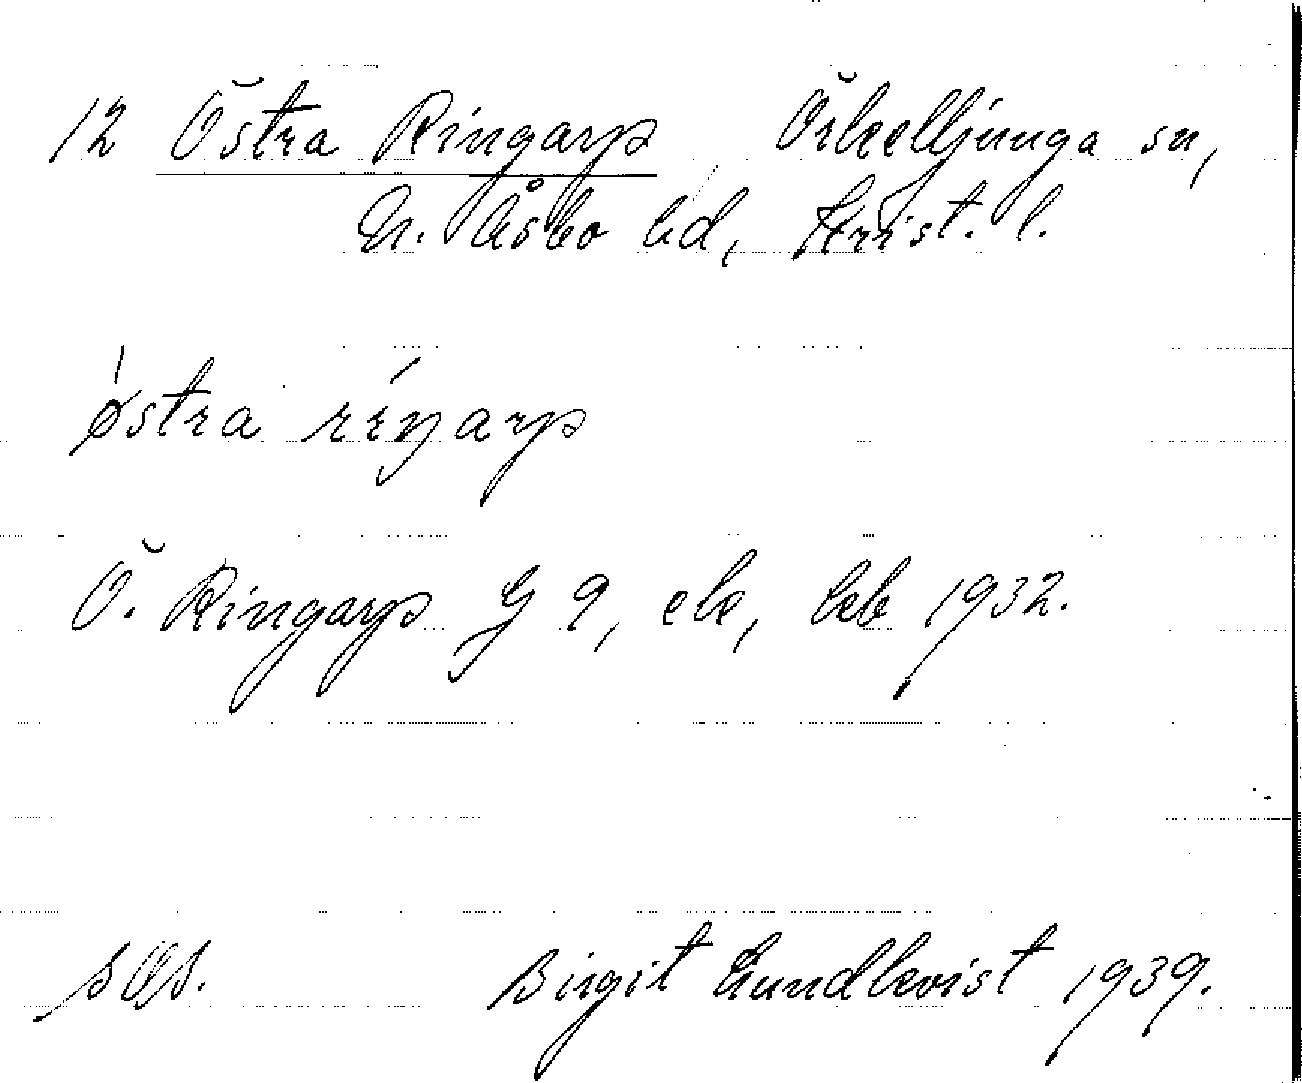 12 Östra Ringarp Örkelljunga sn,
N. Åsbo hd, Krist. l.
østra rıŋarp
Ö. Ringarp G 9, ek, kb 1932.
Birgit Lundkvist 1939.